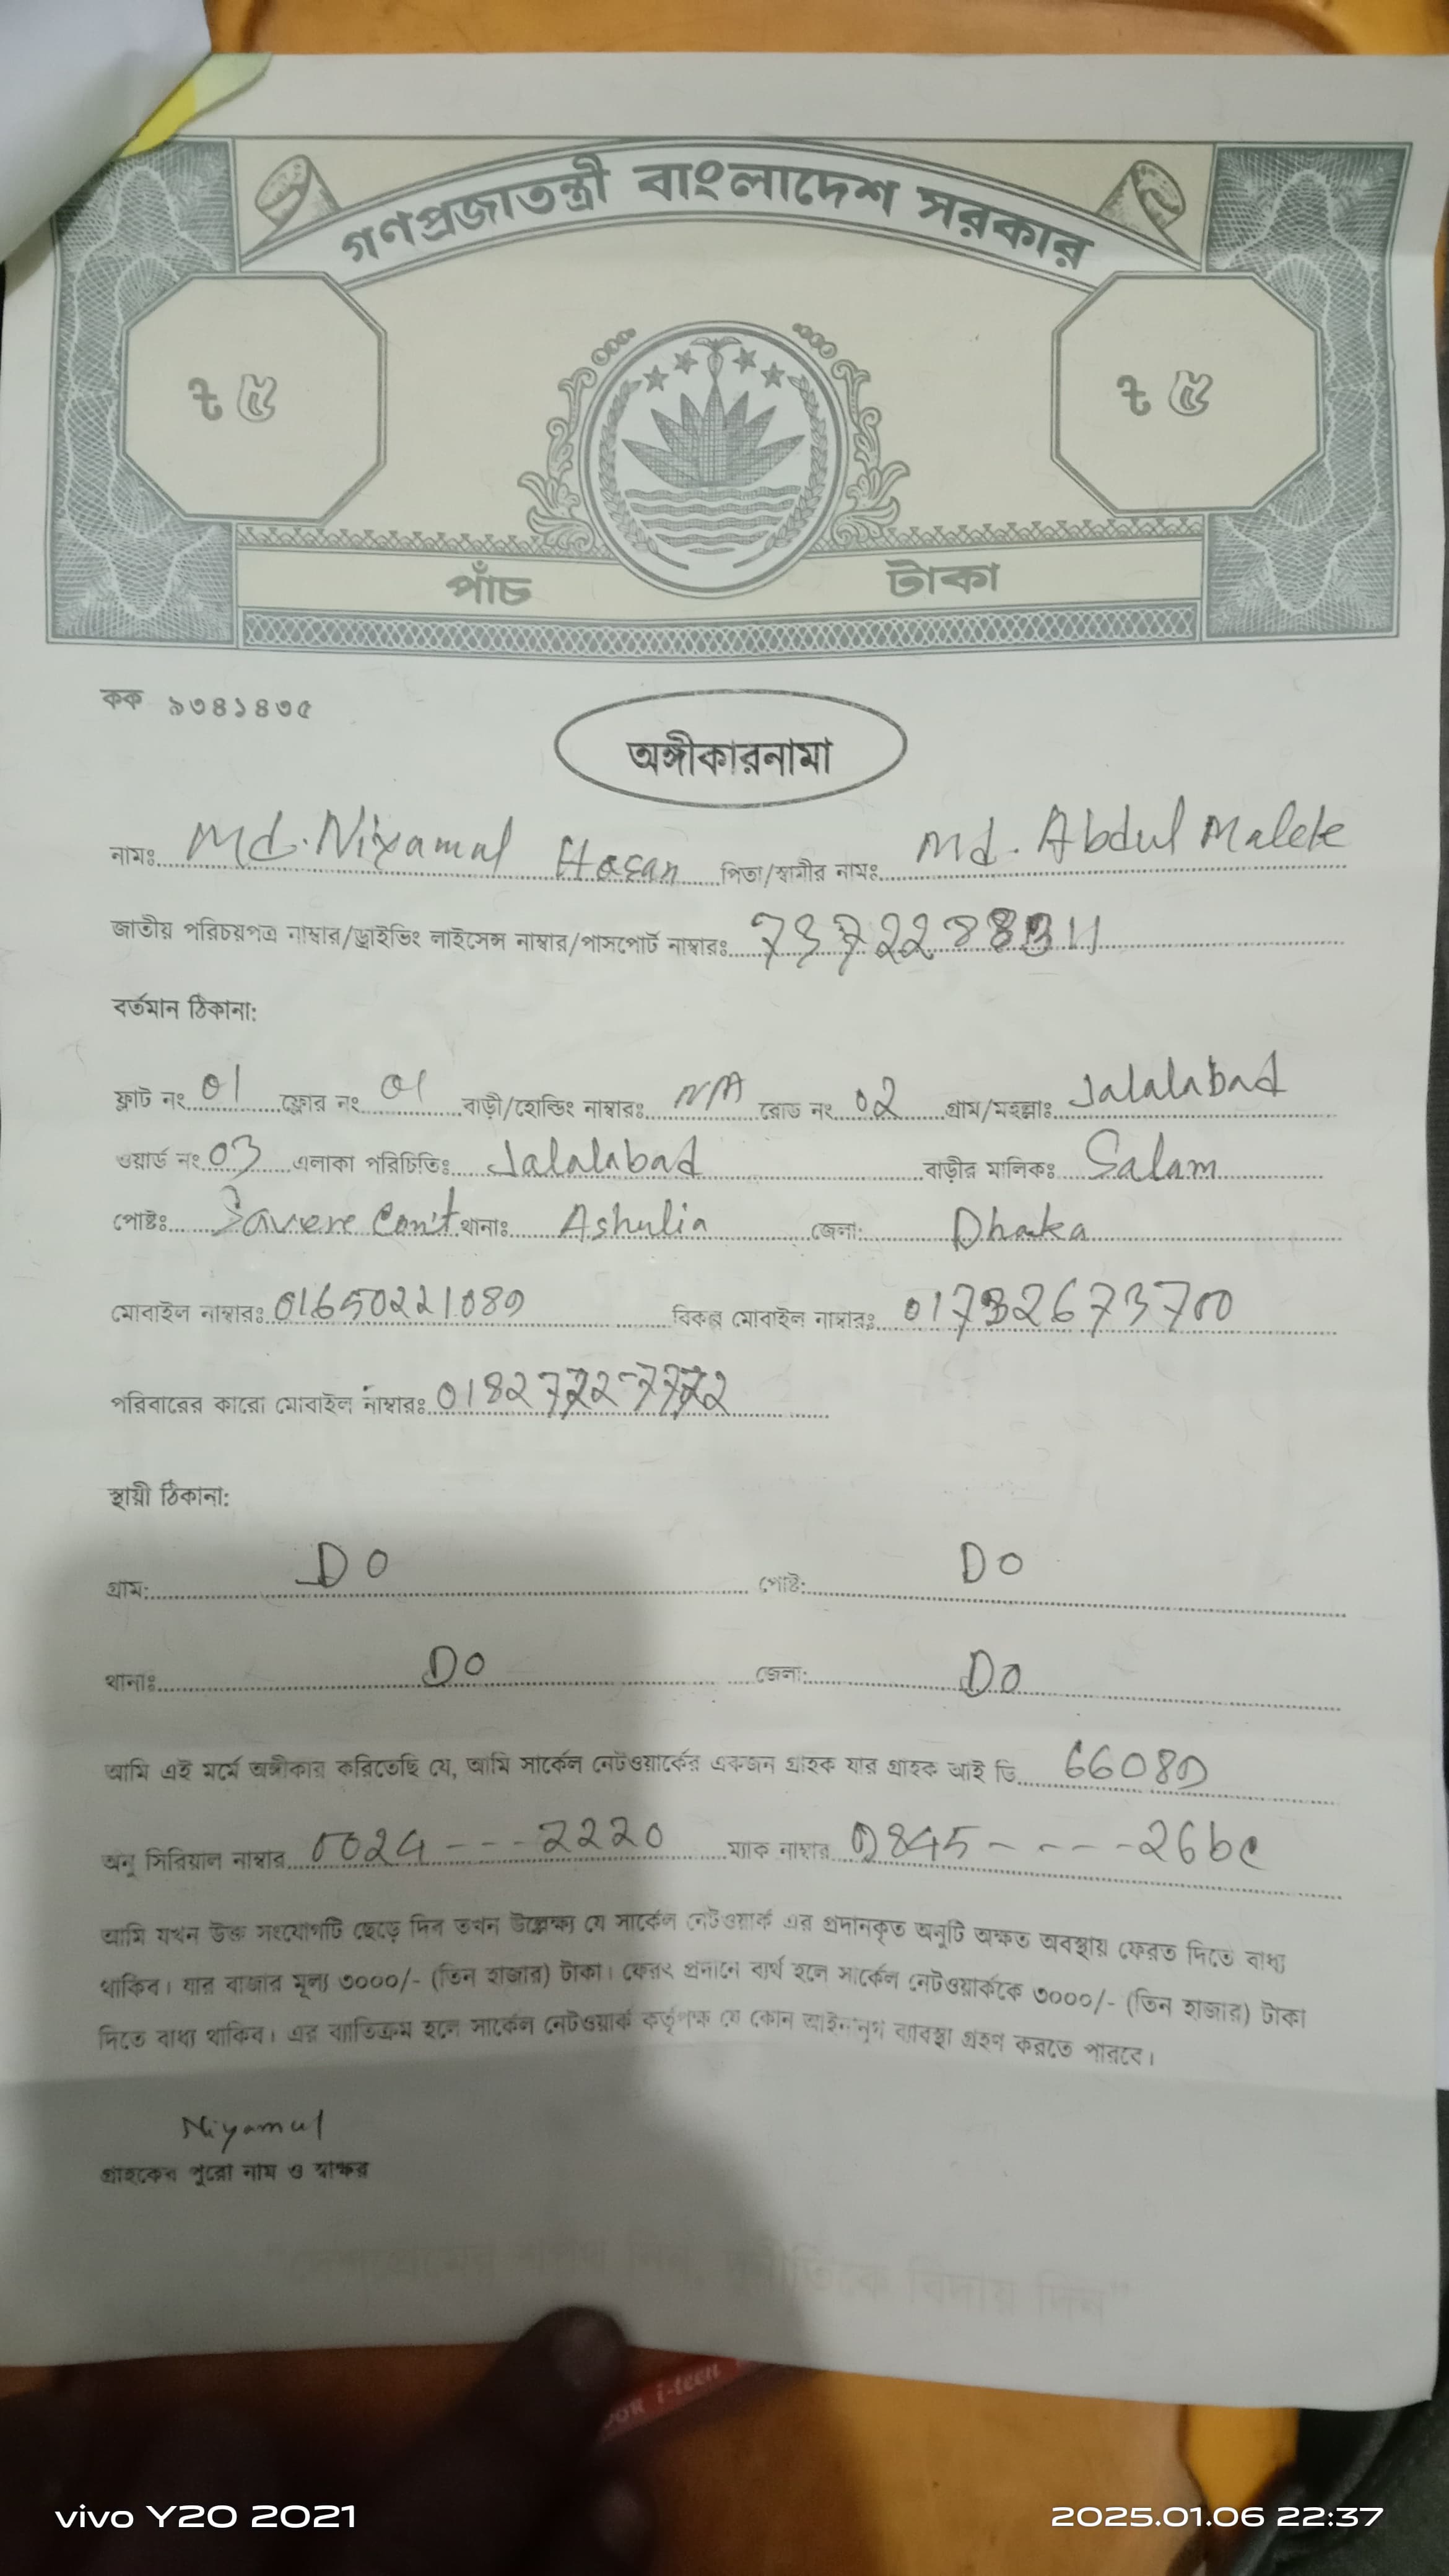 গণপ্রজাতন্ত্রী বাংলাদেশ সরকার
৳ ৫ ৳ ৫
পাঁচ টাকা
কক ৯৩৪১৪৩৫
অঙ্গীকারনামা
নামঃ Md. Niyamul Hasan পিতা/স্বামীর নামঃ Md. Abdul Malek
জাতীয় পরিচয়পত্র নাম্বার/ড্রাইভিং লাইসেন্স নাম্বার/পাসপোর্ট নাম্বারঃ
বর্তমান ঠিকানা:
ফ্লাট নং 01 ফ্লোর নং 01 বাড়ী/হোল্ডিং নাম্বারঃ N/A রোড নং 02 গ্রাম/মহল্লাঃ Jalalabad
ওয়ার্ড নং 03 এলাকা পরিচিতিঃ Jalalabad বাড়ীর মালিকঃ Salam
পোষ্টঃ Savere Can't থানাঃ Ashulia জেলা: Dhaka
মোবাইল নাম্বারঃ 01650221089 বিকল্প মোবাইল নাম্বারঃ
পরিবারের কারো মোবাইল নাম্বারঃ
স্থায়ী ঠিকানা:
গ্রাম: Do পোষ্ট: Do
থানাঃ Do জেলা: Do
আমি এই মর্মে অঙ্গীকার করিতেছি যে, আমি সার্কেল নেটওয়ার্কের একজন গ্রাহক যার গ্রাহক আই ডি 66089
অনু সিরিয়াল নাম্বার 0024 --- 2220 ম্যাক নাম্বার 9845 - - - - 26bc
আমি যখন উক্ত সংযোগটি ছেড়ে দিব তখন উল্লেক্ষ্য যে সার্কেল নেটওয়ার্ক এর প্রদানকৃত অনুটি অক্ষত অবস্থায় ফেরত দিতে বাধ্য
থাকিব। যার বাজার মূল্য ৩০০০/- (তিন হাজার) টাকা। ফেরৎ প্রদানে ব্যর্থ হলে সার্কেল নেটওয়ার্ককে ৩০০০/- (তিন হাজার) টাকা
দিতে বাধ্য থাকিব। এর ব্যাতিক্রম হলে সার্কেল নেটওয়ার্ক কর্তৃপক্ষ যে কোন আইনানুগ ব্যাবস্থা গ্রহণ করতে পারবে।
Niyamul
গ্রাহকের পুরো নাম ও স্বাক্ষর
বিদায় দিন"
i-teen
vivo Y20 2021 2025.01.06 22:37